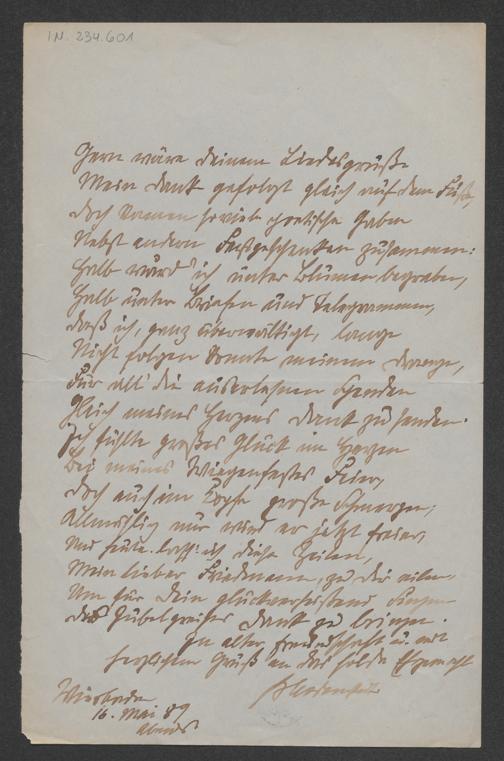 I.N. 234.601
Gern wäre deinem Liedesgruße
Mein Dank gefolgt gleich auf dem Fuße,
Doch kamen soviele poetische Gaben
Nebst andern Festgeschenken zusammen:
Halb ward ich unter Blumen begraben,
Halb unter Briefen und Telegrammen,
Daß ich, ganz überwältigt, lange
Nicht folgen konnte meinem Drange,
Für all' die auserlesnen Spenden
Gleich meines Herzens Dank zu senden.
Ich fühlte großes Glück im Herzen
Bei meines Wiegenfestes Feier,
Doch auch im Kopfe große Schmerzen;
Allmählig nur wird er jetzt freier,
Und heute laß' ich diese Zeilen,
Mein lieber Friedmann, zu dir eilen,
Um für Dein glückverheißend Singen
des Jubelgreises Dank zu bringen.
In alter Freundschaft u. mit
herzlichem Gruß an das holde Ehgemahl
Bodenstedt
Wiesbaden
16. Mai 89
Abends